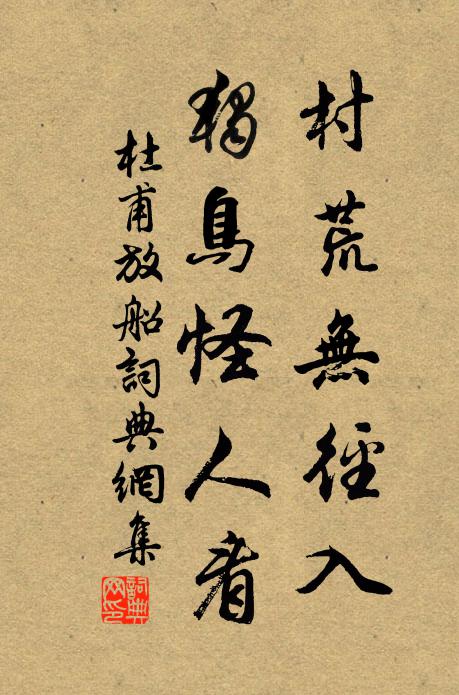 村荒無徑入
獨鳥怪人看
杜甫放船詞典網集
詞典網印